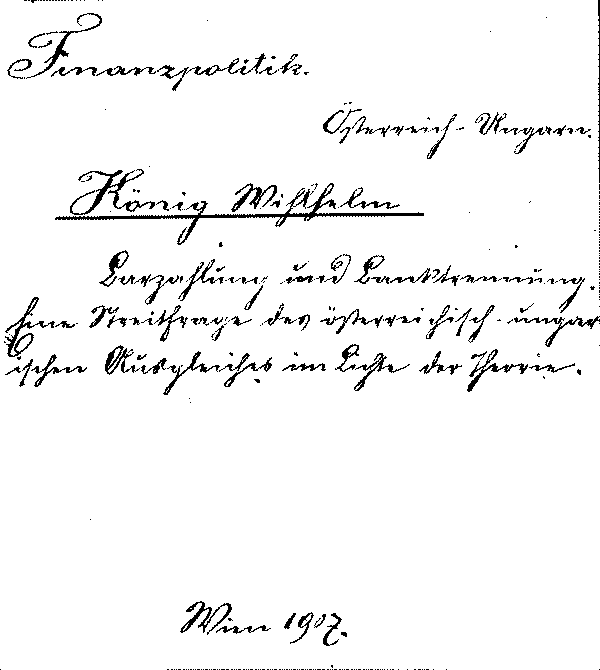 Finanzpolitik.
Österreich-Ungarn.
König Wilhelm
Barzahlung und Banktrennung.
Eine Streitfrage des österreichisch-ungar
ischen Ausgleiches im Lichte der Theorie.
Wien 1907.